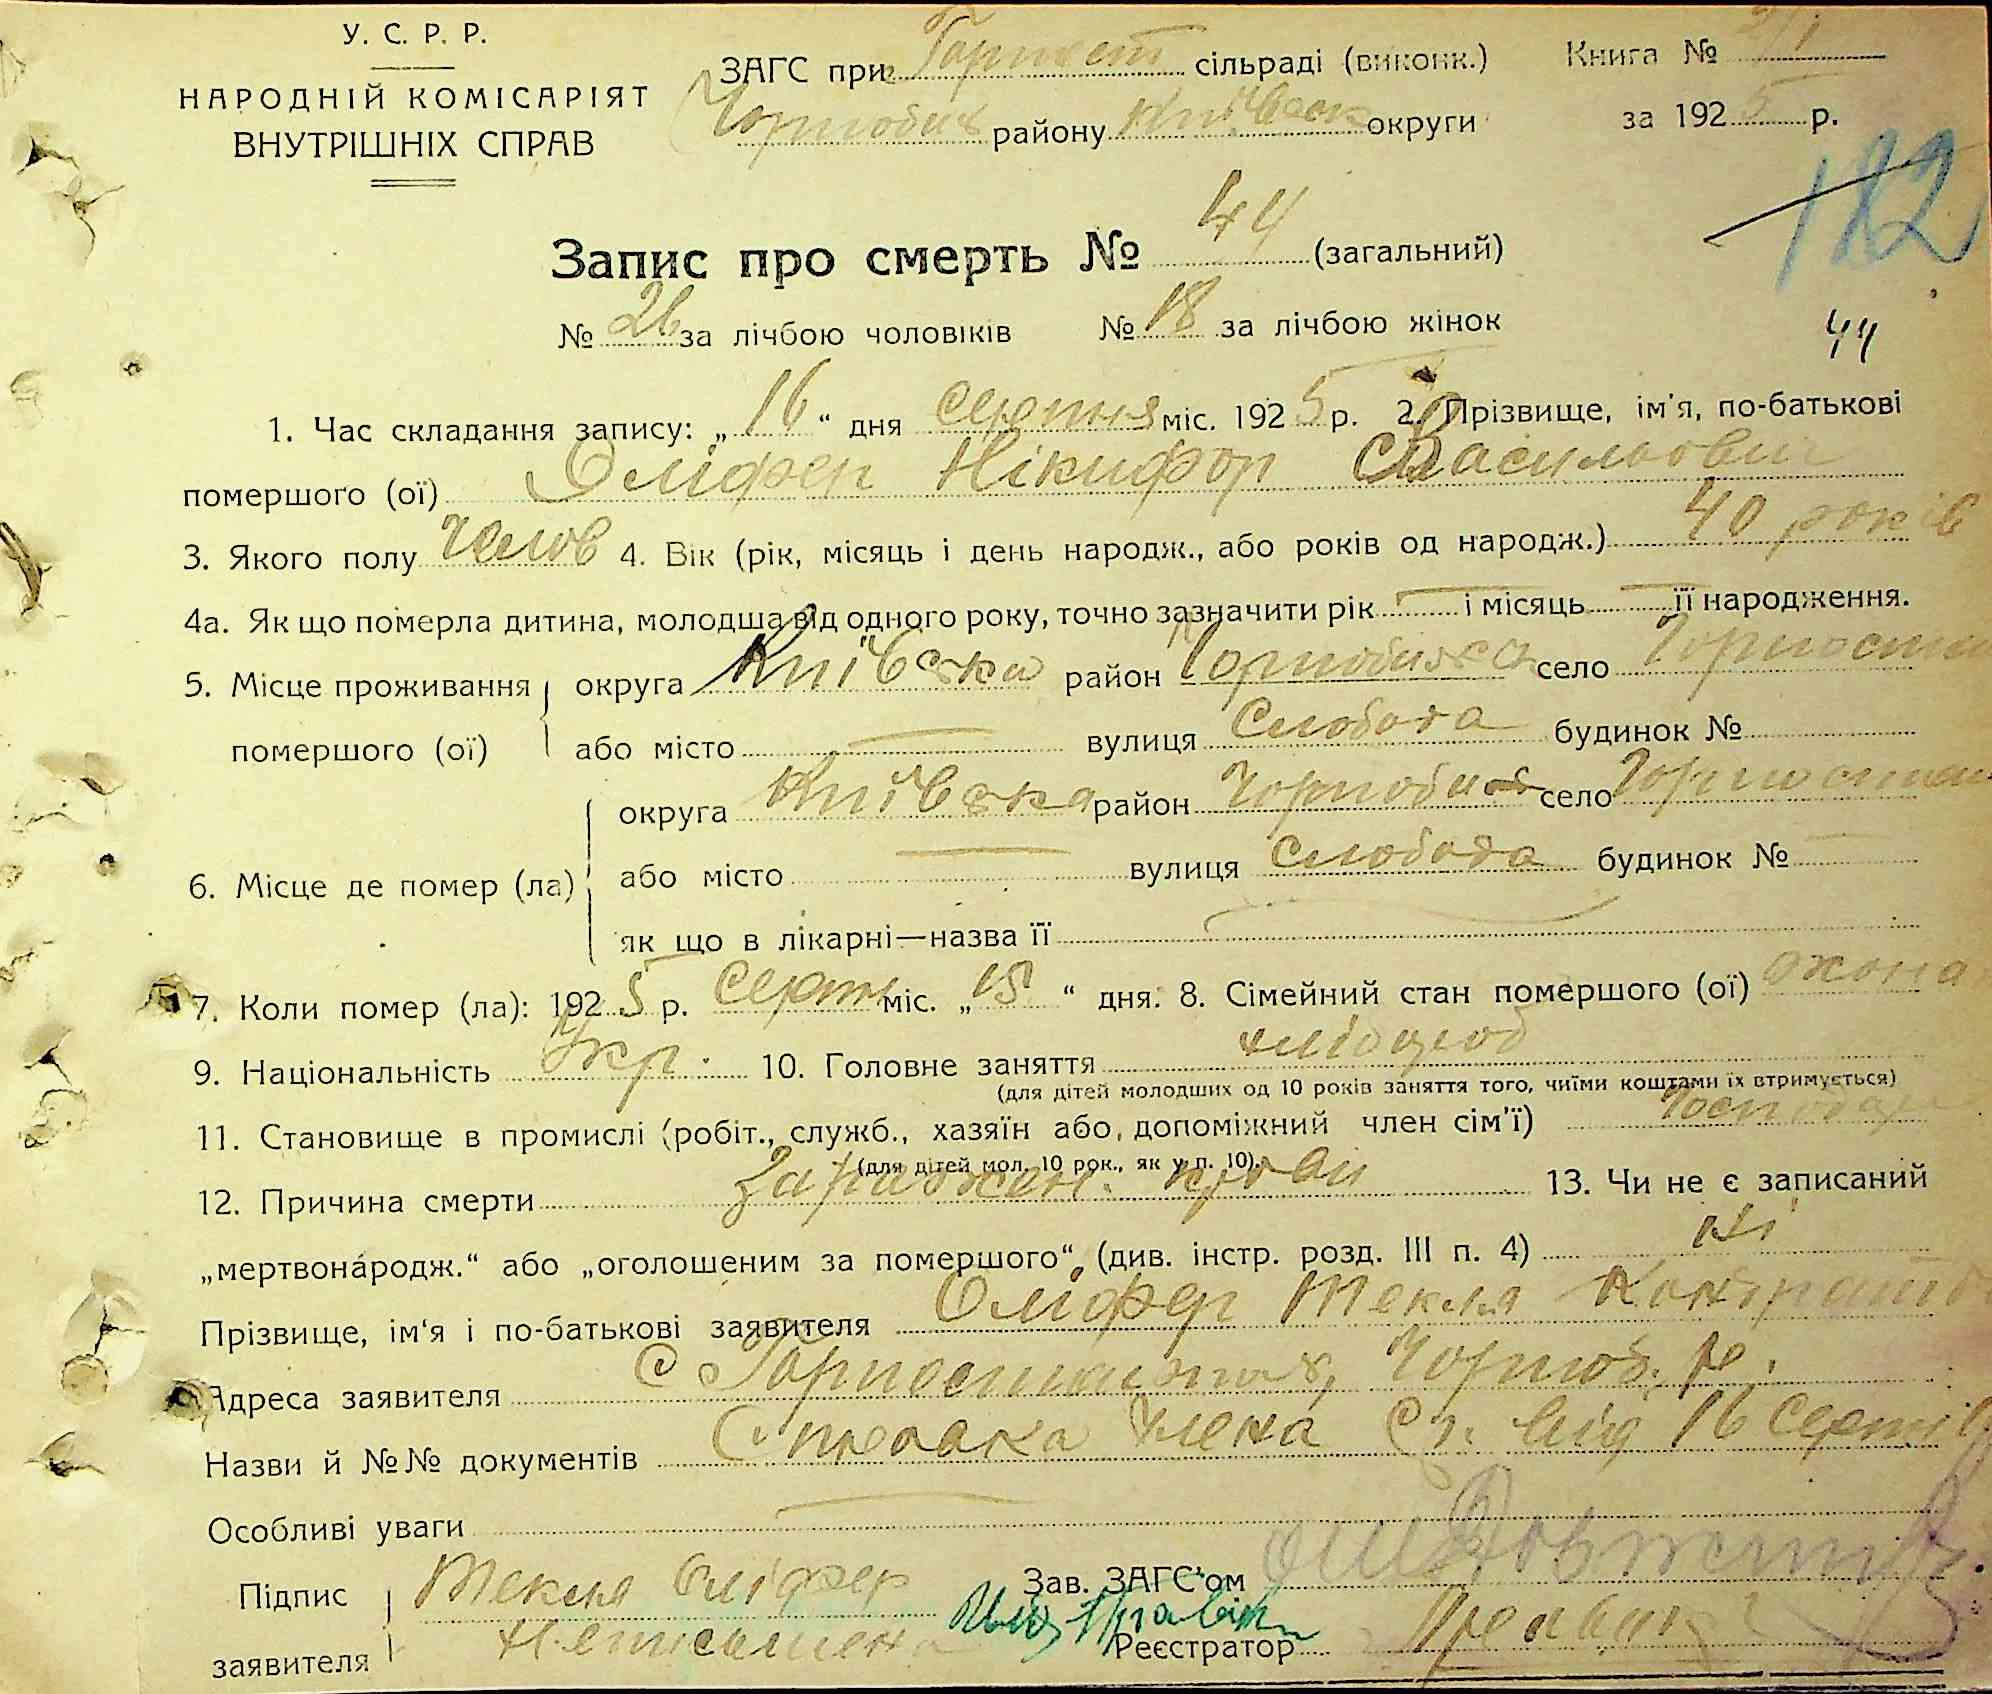 У. С. Р. Р.
НАРОДНІЙ КОМІСАРІЯТ
ВНУТРІШНІХ СПРАВ
ЗАГС при Горност сільраді (виконк.)
Чорнобил району Київськ округи
Книга №
за 1925 р.
182
Запис про смерть № 44 (загальний)
№ 26 за лічбою чоловіків № 18 за лічбою жінок
44
1. Час складання запису: „16“ дня серпня міс. 1925 р. 2. Прізвище, ім'я, по-батькові
помершого (ої) Оліфер Нікифор Васильович
3. Якого полу Челов 4. Вік (рік, місяць і день народж., або років од народж.) 40 років
4а. Як що померла дитина, молодша від одного року, точно зазначити рік — і місяць — її народження.
5. Місце проживання округа Київська район Чорнобильськ село Горностай
помершого (ої) або місто — вулиця Слобода будинок №
округа Київська район Чорнобил село Горностай
6. Місце де помер (ла) або місто — вулиця Слобода будинок №
як що в лікарні—назва її
7. Коли помер (ла): 1925 р. Серпн міс. „15“ дня. 8. Сімейний стан помершого (ої)
9. Національність Укр. 10. Головне заняття хлібороб
(для дітей молодших од 10 років заняття того, чиїми коштами їх втримується)
11. Становище в промислі (робіт., служб., хазяїн або, допоміжний член сім'ї) Господар
(для дітей мол. 10 рок., як у п. 10).
12. Причина смерти Заражен. крови 13. Чи не є записаний
„мертвонародж.“ або „оголошеним за помершого“, (див. інстр. розд. III п. 4) Ні
Прізвище, ім'я і по-батькові заявителя Оліфер Текля
Адреса заявителя с. Горностайпол, Чорноб. р.
Назви й №№ документів Справка члена Ср. від 16 Серпня
Особливі уваги —
Підпис Текля Оліфер Зав. ЗАГС'ом
заявителя Неписьмена Реєстратор